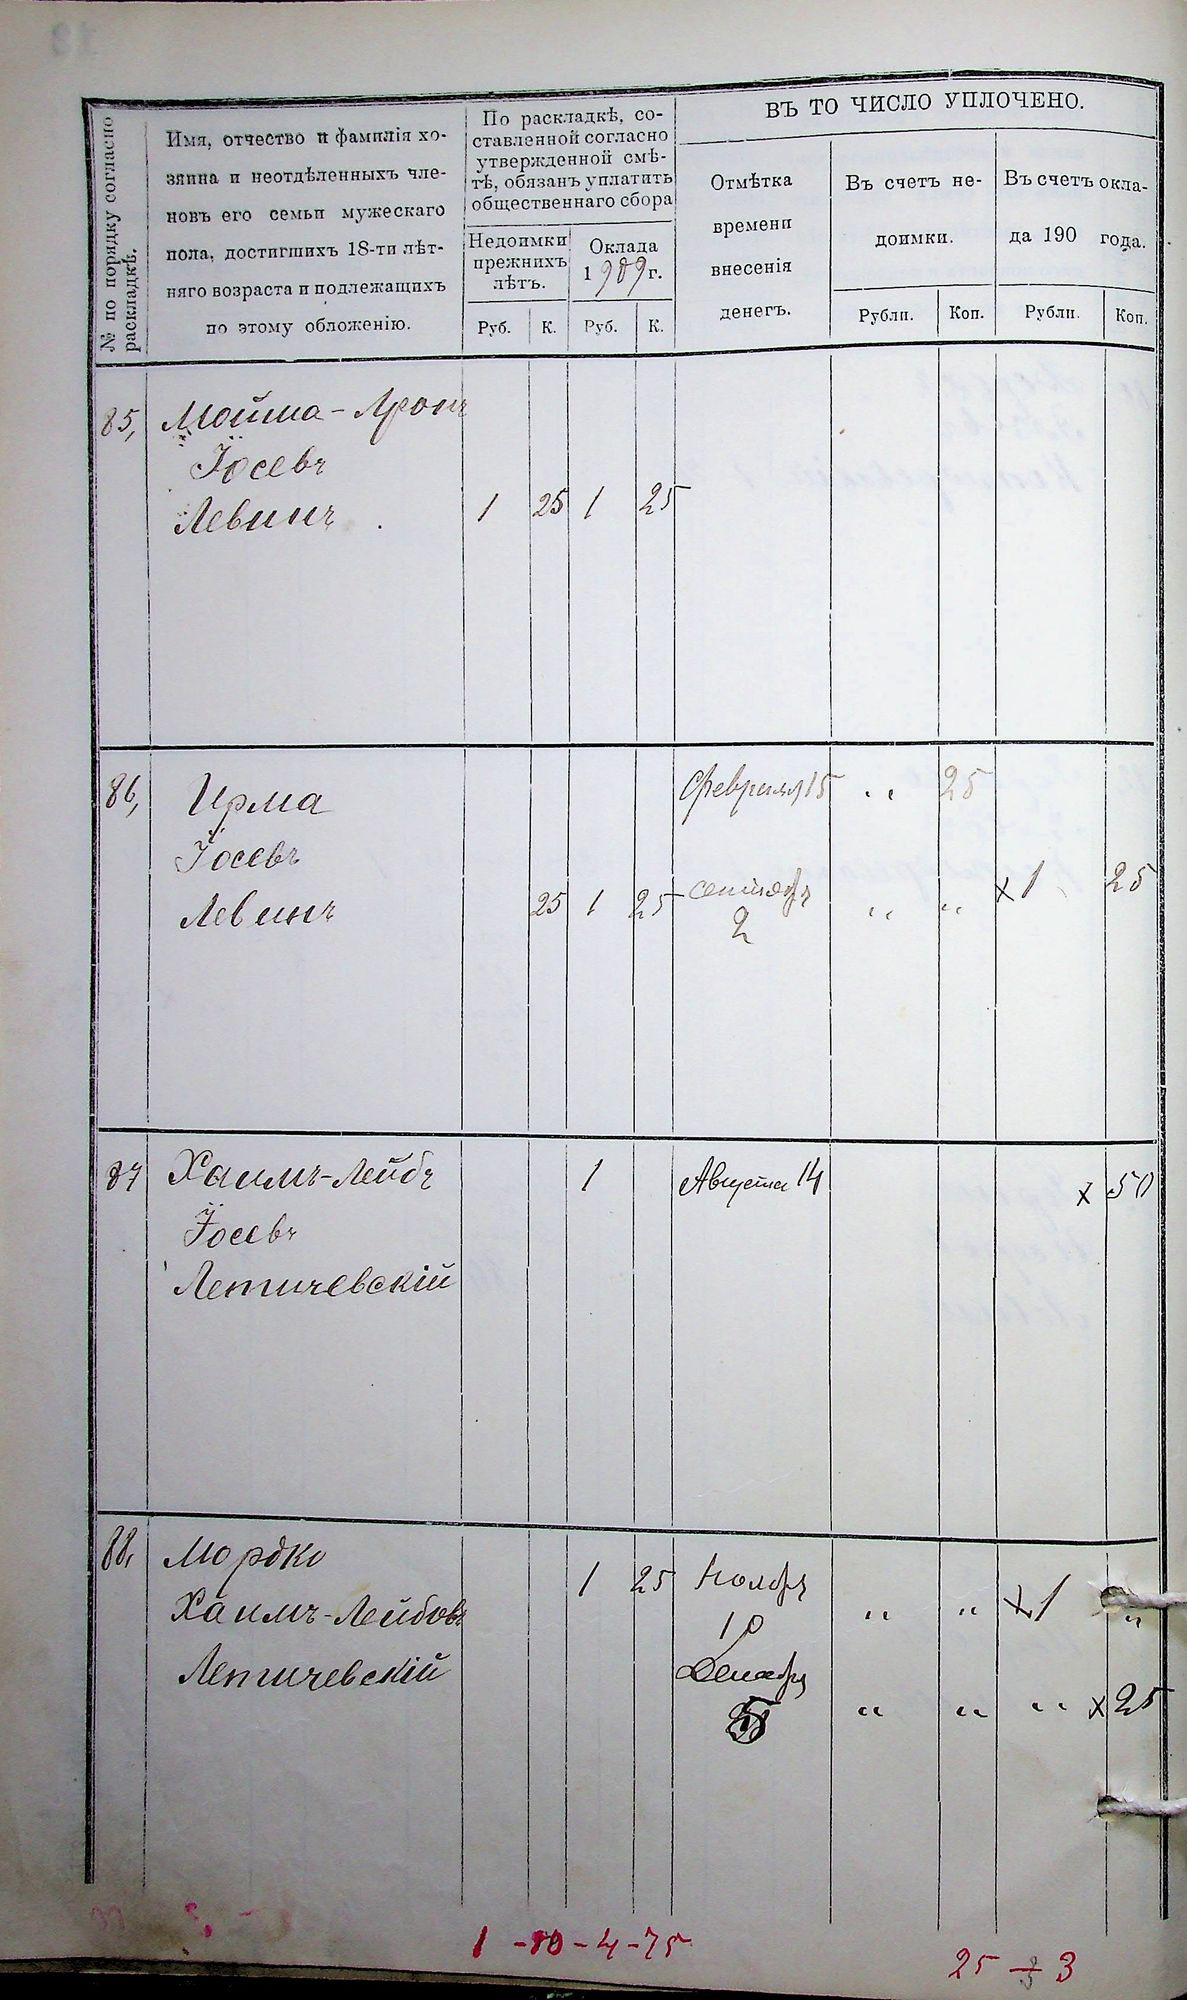 № по порядку согласно
раскладкѣ.
Имя, отчество и фамилія хо-
зяина и неотдѣленныхъ чле-
новъ его семьи мужескаго
пола, достигшихъ 18-ти лѣт-
няго возраста и подлежащихъ
по этому обложенію.
По раскладкѣ, со-
ставленной согласно
утвержденной смѣ-
тѣ, обязанъ уплатить
общественнаго сбора
Недоимки
прежнихъ
лѣтъ.
Оклада
1909 г.
Руб. К. Руб. К.
ВЪ ТО ЧИСЛО УПЛОЧЕНО.
Отмѣтка
времени
внесенія
денегъ.
Въ счетъ не-
доимки.
Въ счетъ окла-
да 190 года.
Рубли. Коп. Рубли. Коп.
85, Мойша-Аронъ
Іосевъ
Левинъ 1 25 1 25
86, Ирма Февраля 15 " 25
Іосевъ
Левинъ 25 1 25 сентябр " " х 1 25
2
87 Хаимъ-Лейбъ 1 Августа 14 х 50
Іосевъ
Летичевскій
88, Мордко 1 25 Ноябр " " х 1 "
Хаимъ-Лейбовъ 10
Летичевскій Декабр " " " х 25
1 - 50 - 4 - 75
25 - 3